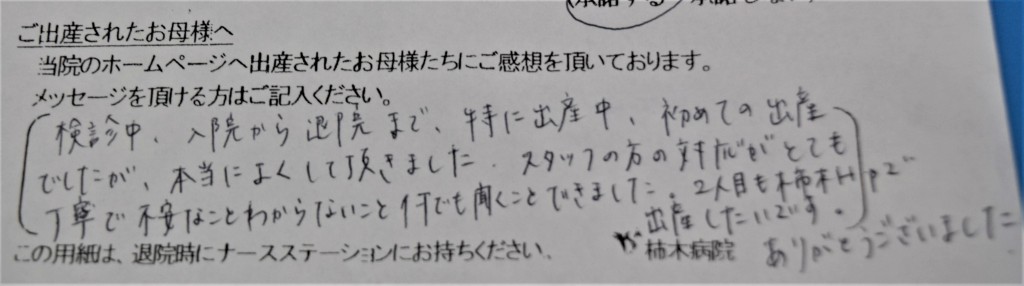 (承諾する 承諾しない)
ご出産されたお母様へ
当院のホームページへ出産されたお母様たちにご感想を頂いております。
メッセージを頂ける方はご記入ください。
検診中、入院から退院まで、特に出産中、初めての出産
でしたが、本当によくして頂きました。スタッフの方の対応がとても
丁寧で不安なことわからないこと何でも聞くことできました。2人目も柿木Hpで
出産したいです。
ありがとうございました
この用紙は、退院時にナースステーションにお持ちください。
柿木病院